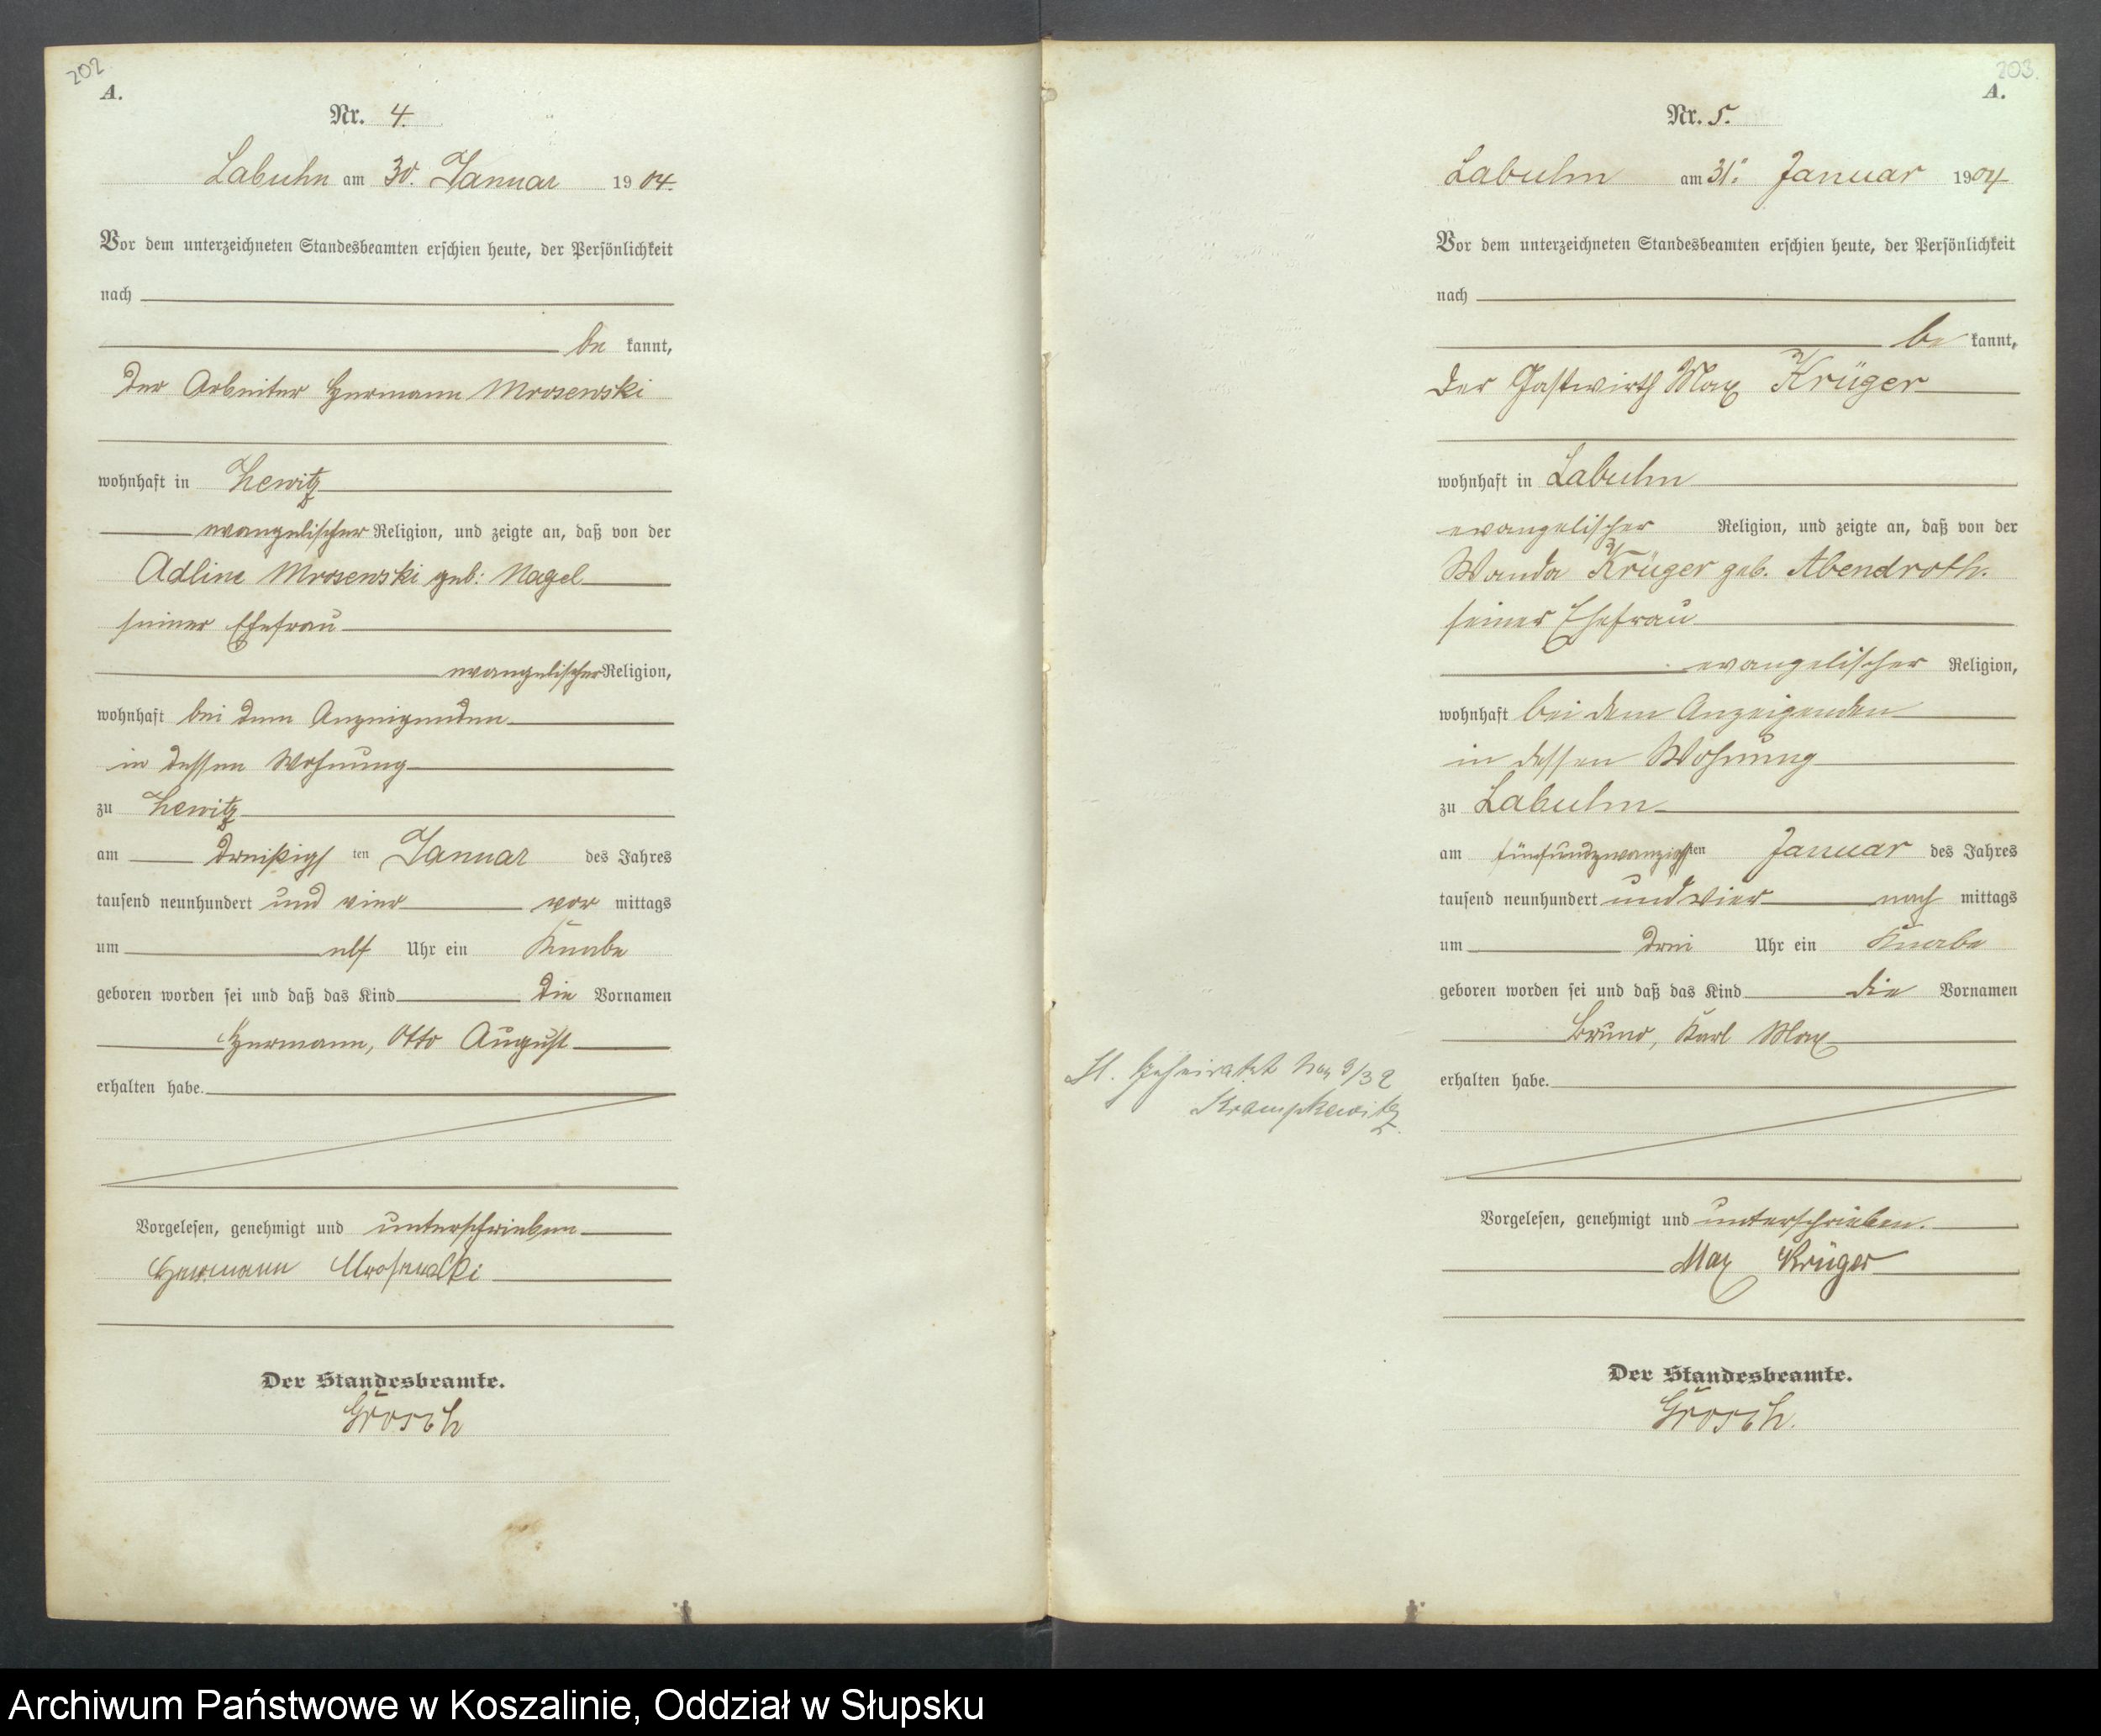 202
A.
Nr. 4.
Labuhn am 30. Januar 1904.
Vor dem unterzeichneten Standesbeamten erschien heute, der Persönlichkeit
nach
be kannt,
der Arbeiter Hermann Mrosewski
wohnhaft in Zewitz
evangelischer Religion, und zeigte an, daß von der
Adline Mrosewski geb: Nagel
seiner Ehefrau
evangelischer Religion,
wohnhaft bei dem Anzeigenden
in dessen Wohnung
zu Zewitz
am dreißigs ten Januar des Jahres
tausend neunhundert und vier vor mittags
um elf Uhr ein Knabe
geboren worden sei und daß das Kind die Vornamen
Hermann, Otto August
erhalten habe.
Vorgelesen, genehmigt und unterschrieben
Hermann Mrosewski
Der Standesbeamte.
Grosch
203.
A.
Nr. 5.
Labuhn am 31. Januar 1904
Vor dem unterzeichneten Standesbeamten erschien heute, der Persönlichkeit
nach
be kannt,
der Gastwirth Max Krüger
wohnhaft in Labuhn
evangelischer Religion, und zeigte an, daß von der
Wanda Krüger geb. Abendroth.
seiner Ehefrau
evangelischer Religion,
wohnhaft bei dem Anzeigenden
in dessen Wohnung
zu Labuhn
am fünfundzwanzigsten Januar des Jahres
tausend neunhundert und vier nach mittags
um drei Uhr ein Knabe
geboren worden sei und daß das Kind die Vornamen
Bruno, Karl Max
erhalten habe.
Geheiratet
Krampkewitz.
Vorgelesen, genehmigt und unterschrieben.
Max Krüger
Der Standesbeamte.
Grosch.
Archiwum Państwowe w Koszalinie, Oddział w Słupsku